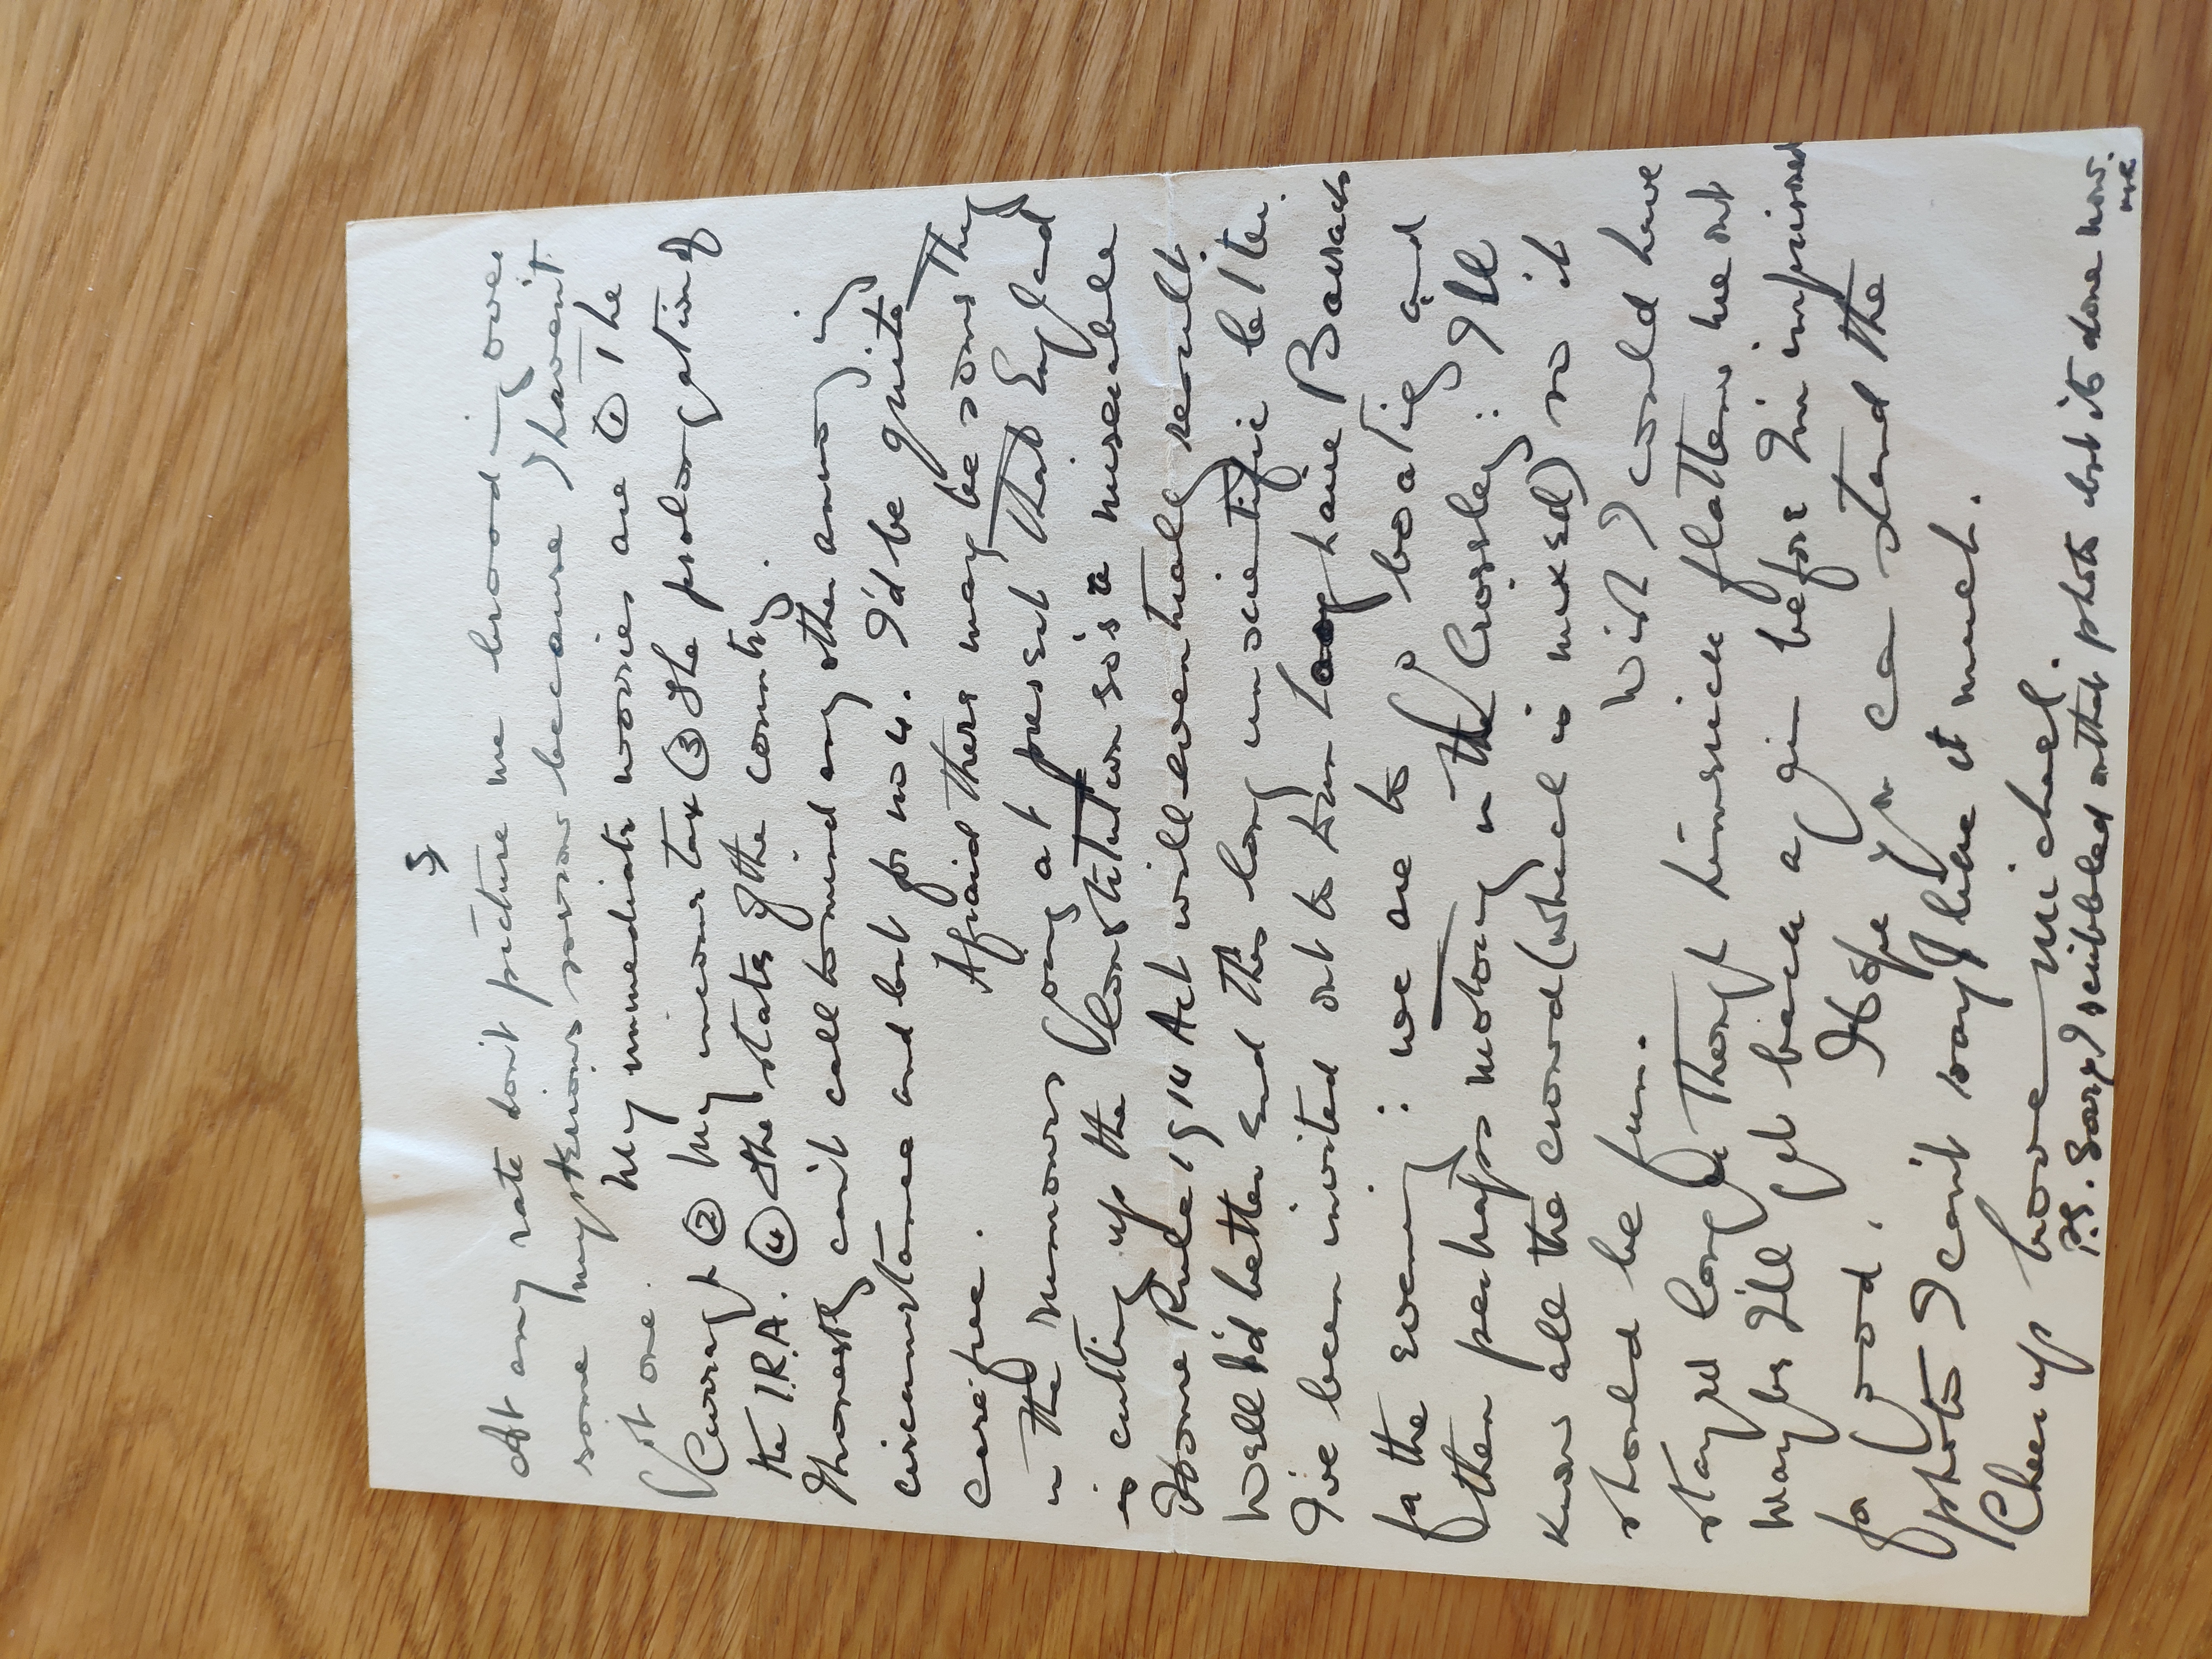 5
At any rate don't picture me brooding over
some mysterious sorrow because I havent
got one. My immediate worries are ① The
Curragh ② My income tax ③ The prolongation of
the I.R.A. ④ The state of the country.
Honestly can't call to mind any other annoying
circumstance and but for no 4. I'd be quite
carefree. Afraid there may be something
in the rumours going at present that England
is cutting up the Constitution so's a miserable
Home Rule 1914 Act will eventually result.
Well I'd better end this long unscientific letter.
I've been invited out to Tum Barracks
for the evening: we are to go boating and
then perhaps motoring in the Crossley: I'll
know all the crowd (which is mixed) so it
should be fun. Wish I could have
stayed longer though Limerick flattens me out
maybe I'll get back again before I'm imprisoned
for good. Hope you can stand the
photo I can't say I like it much.
Cheer up love Michael.
P.S. Sorry I scribbled on that photo but its done now.
me